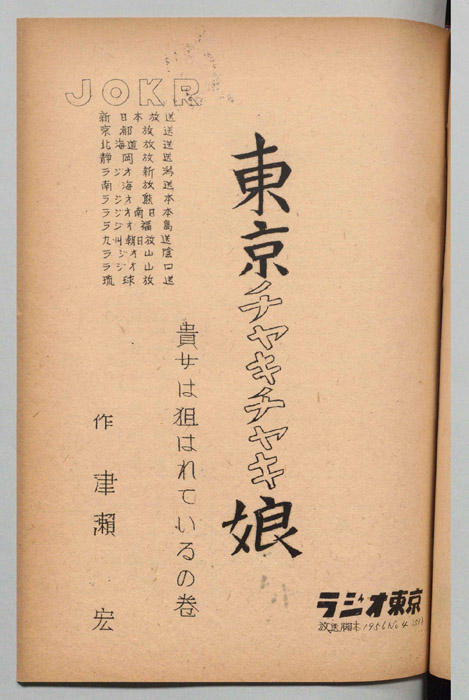 JOKR
新日本放送
京都放送
北海道放送
静岡放送
ラジオ新潟
南海放送
ラジオ熊本
ラジオ南日本
ラジオ福島
九州朝日放送
ラジオ山陰
ラジオ山口
琉球放送
東京チャキチャキ娘
貴女は狙はれているの巻
作 津瀬 宏
ラジオ東京
放送脚本 1956 No 4